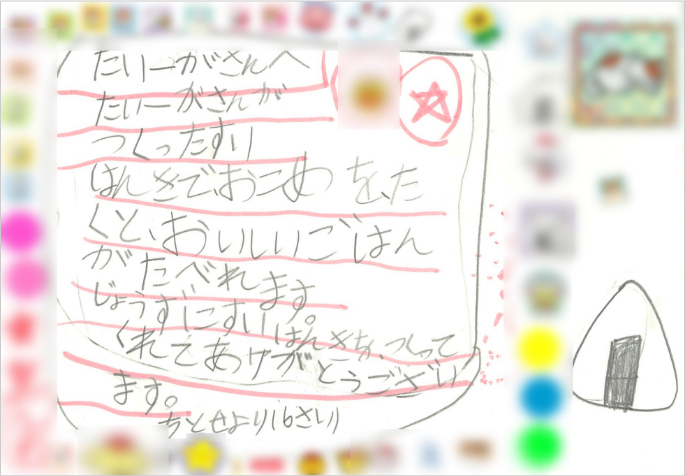 たいーがさんへ
たいーがさんが
つくったすい
はんきでおこめを、た
くと、おいしいごはん
がたべれます
じょうずにすいはんきを、つくって
くれてありがとうござい
ます。
ちとせより(6さい)